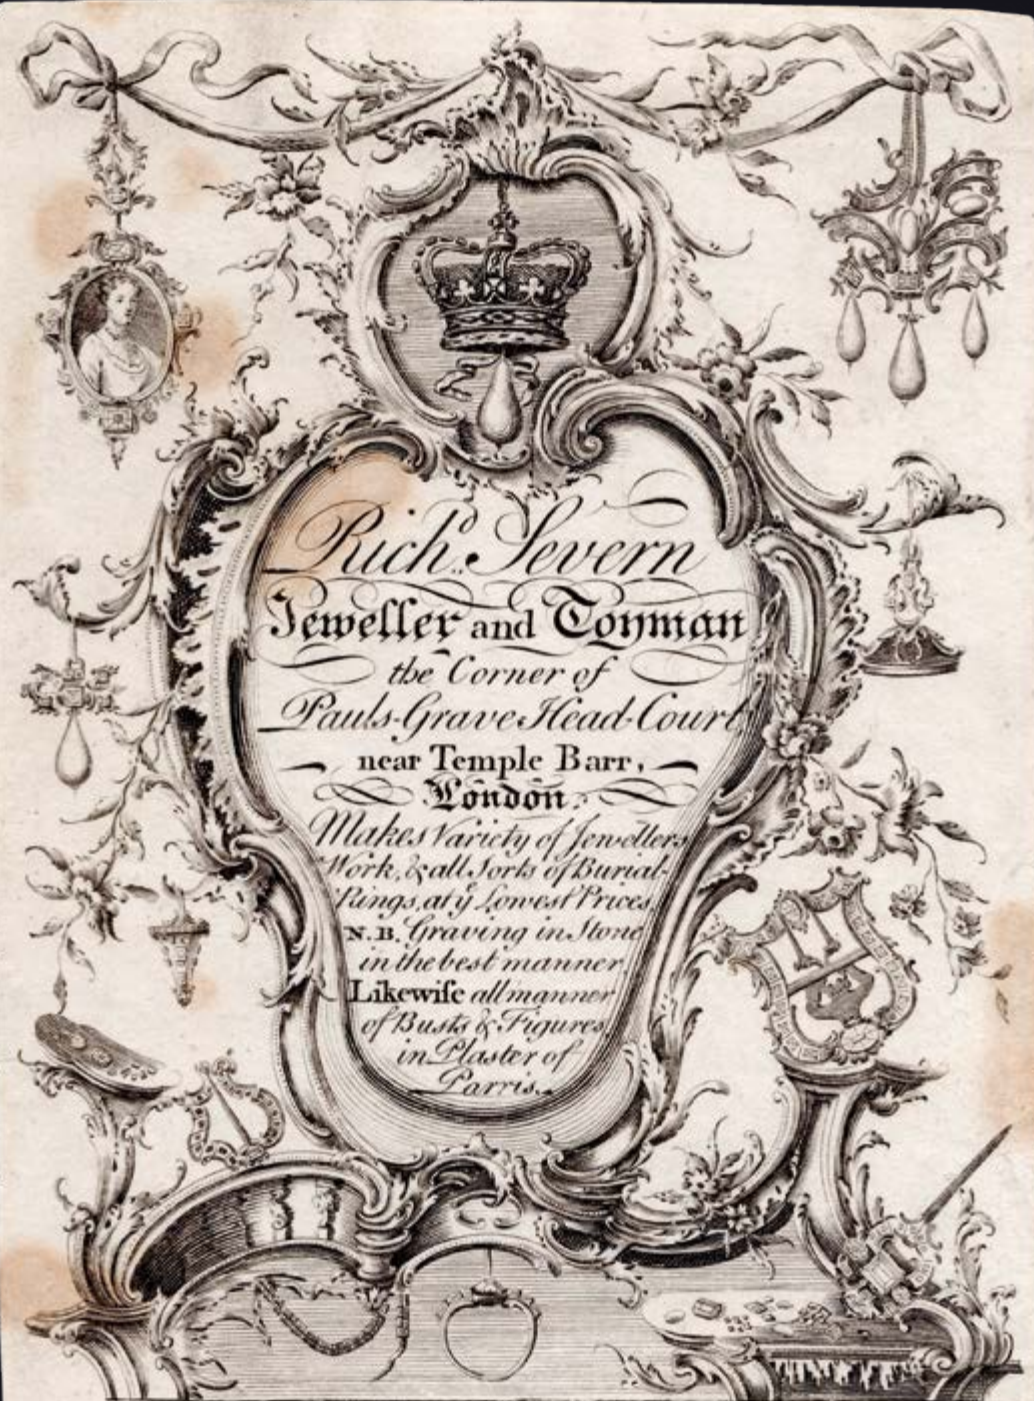 Richd. Severn
Jeweller and Toyman
the Corner of
Pauls-Grave Head-Court
near Temple Barr,
London.
Makes Variety of Jewellers
Work, & all Sorts of Burial-
Rings, at ye Lowest Prices
N.B. Graving in Stone
in the best manner
Likewise all manner
of Busts & Figures
in Plaster of
Parris.